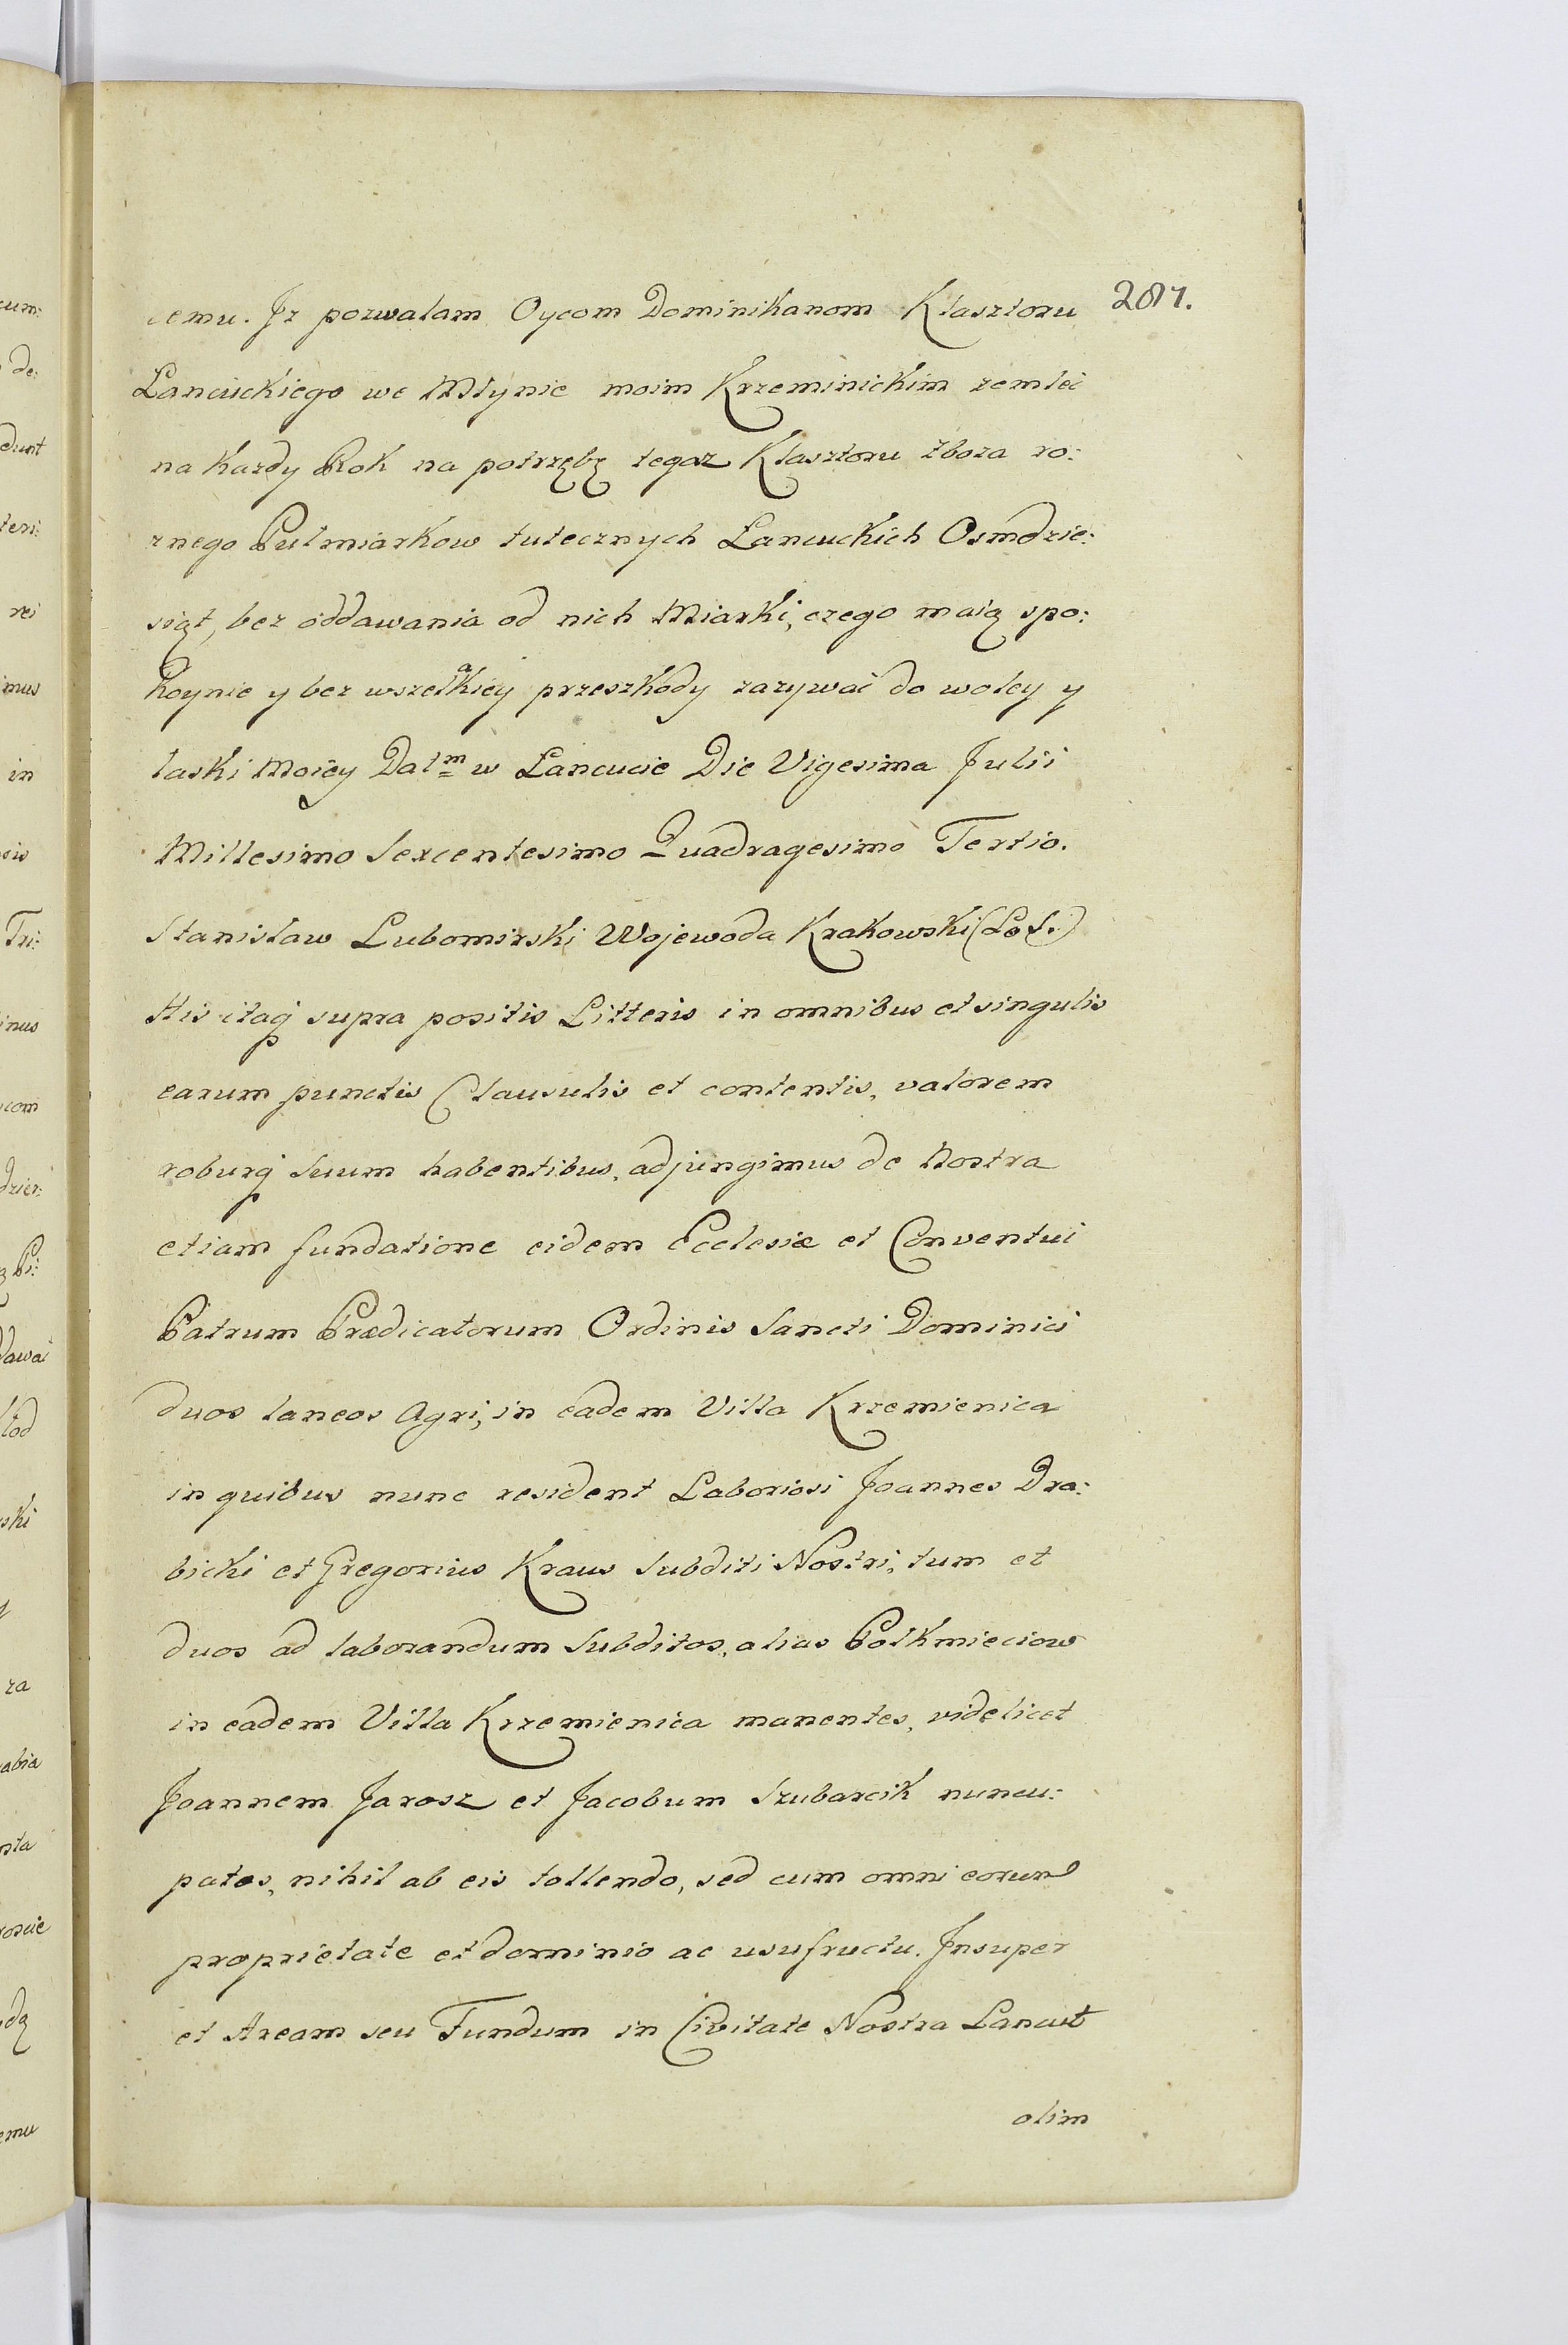 cemu. Jz pozwalam Oycom Dominikanom Klasztoru 287.
Lancuckiego we Młynie moim Krzeminickim zemleć
na kazdy Rok na potrzębę tegoz Klasztoru zboza ro:
znego Pułmiarkow tutecznych Lancuckich Osmdzie:
siąt, bez oddawania od nich Miarki, czego maią spo:
koynie y bez wszelakiey przeszkody zazywać do woley y
łaski Moiey Datm w Lancucie Die Vigesima Julii
Millesimo Sexcentesimo Quadragesimo Tertio.
Stanisław Lubomirski Wojewoda Krakowski (L.S.)
His itaq supra positis Litteris in omnibus et singulis
earum punctis Clausulis et contentis, valorem
roburq Suum habentibus, adjungimus de Nostra
etiam fundatione eidem Ecclesiæ et Conventui
Patrum Prædicatorum Ordinis Sancti Dominici
duos laneos Agri, in eadem Villa Krzemienica
in quibus nunc resident Laboriosi Joannes Dra:
bicki et Gregorius Kraus Subditi Nostri, tum et
duos ad laborandum Subditos, alias Połkmieciow
in eadem Villa Krzemienica manentes, videlicet
Joannem Jarosz et Jacobum Szubarcik nuncu:
patos, nihil ab eis tollendo, sed cum omni eorum
proprietate et dominio ac usufructu. Insuper
et Aream seu Fundum in Civitate Nostra Lancut
olim